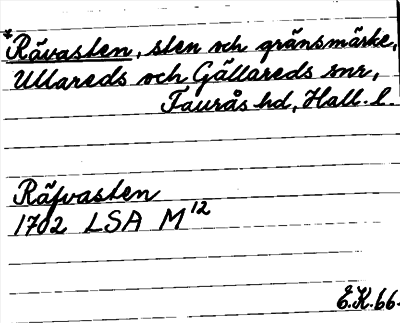 *Rävasten, sten och gränsmärke,
Ullareds och Gällareds snr,
Faurås hd, Hall. l.
Räfvasten
1702 LSA M 12
E.K. 66.